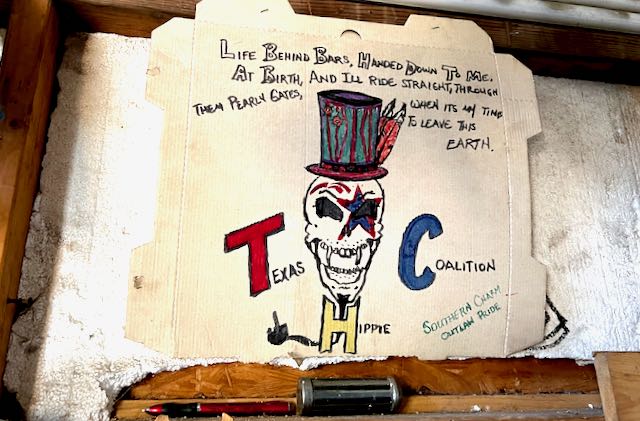 LIFE BEHIND BARS, HANDED DOWN TO ME,
AT BIRTH, AND ILL RIDE STRAIGHT, THROUGH
THEM PEARLY GATES, WHEN ITS MY TIME
TO LEAVE THIS
EARTH.
TEXAS
COALITION
HIPPIE
SOUTHERN CHARM
OUTLAW PRIDE